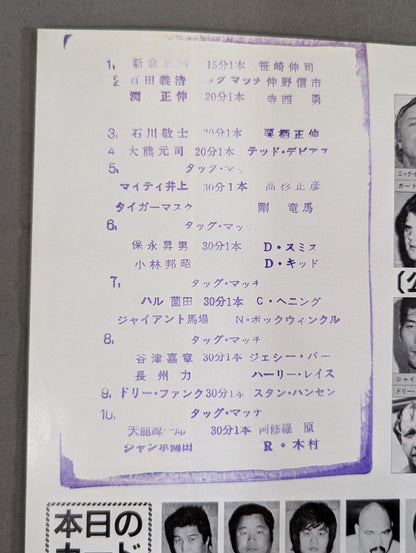 1. 新倉 15分1本 笹崎伸司
2 百田義浩 タッグマッチ 仲野信市
渕 正伸 20分1本 寺西 勇
3. 石川敬士 20分1本 栗栖正伸
4 大熊元司 20分1本 テッド・デビアス
5. タッグ・マッ
マイティ井上 30分1本 高杉正彦
タイガーマスク 剛 竜馬
6. タッグ・マッ
保永昇男 30分1本 D・スミス
小林邦昭 D・キッド
7. タッグ・マッチ
ハル 薗田 30分1本 C・ヘニング
ジャイアント馬場 N・ボックウィンクル
8. タッグ・マッチ
谷津嘉章 30分1本 ジェシー・バー
長州 力 ハーリー・レイス
9. ドリー・ファンク 30分1本 スタン・ハンセン
10. タッグ・マッチ
天龍源一郎 30分1本 阿修羅 原
ジャンボ鶴田 R・木村
本日の
カード